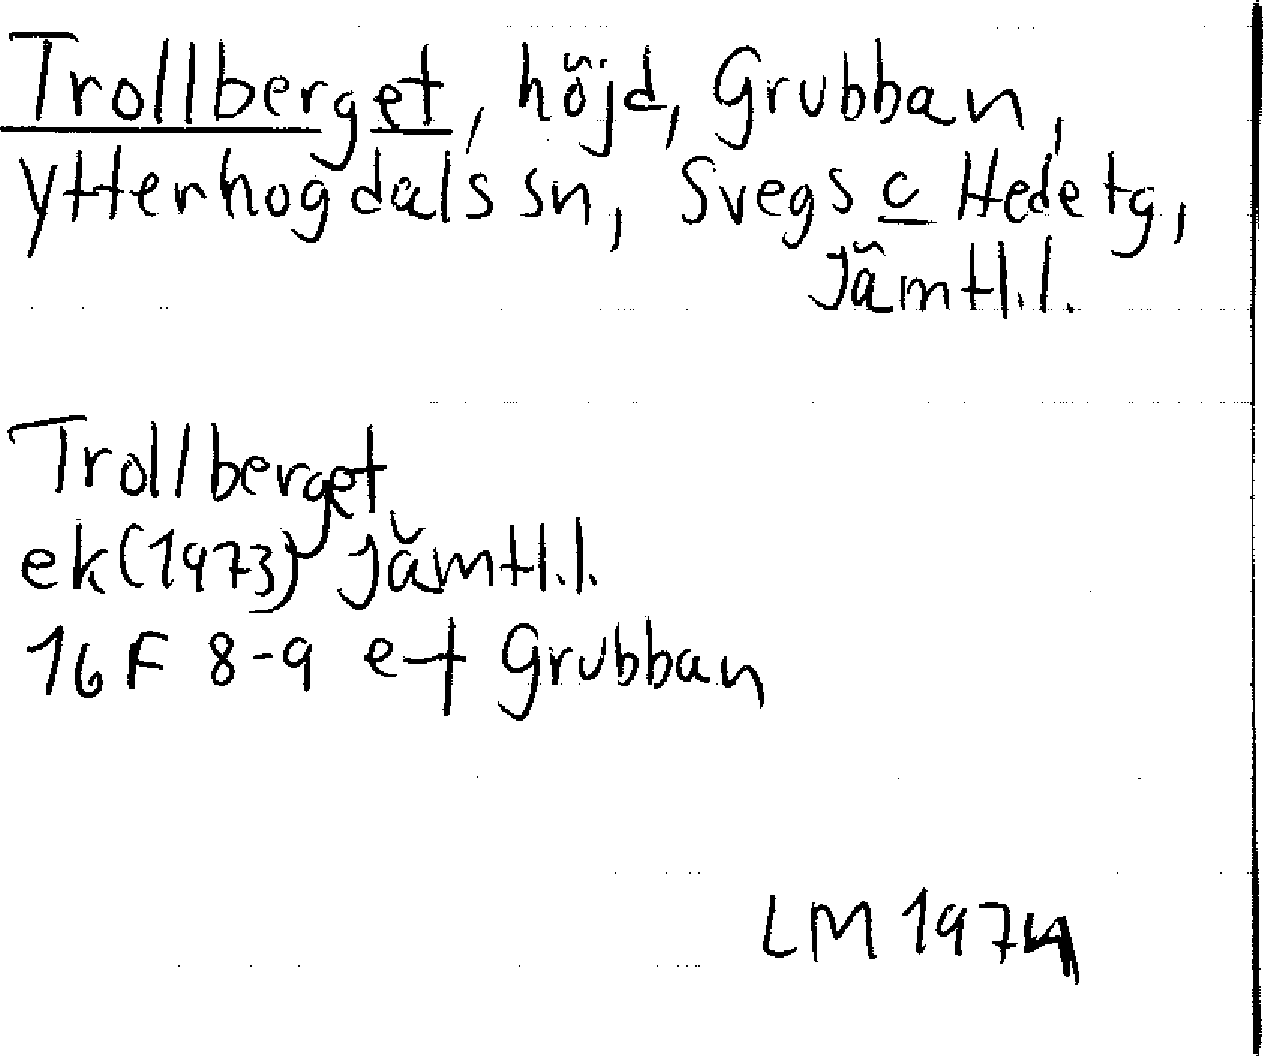 Trollberget, höjd, Grubban,
Ytterhogdals sn, Svegs c Hede tg,
Jämtl.l.
Trollberget
ek(1973) Jämtl.l.
16 F 8-9 e-f Grubban
LM 1974